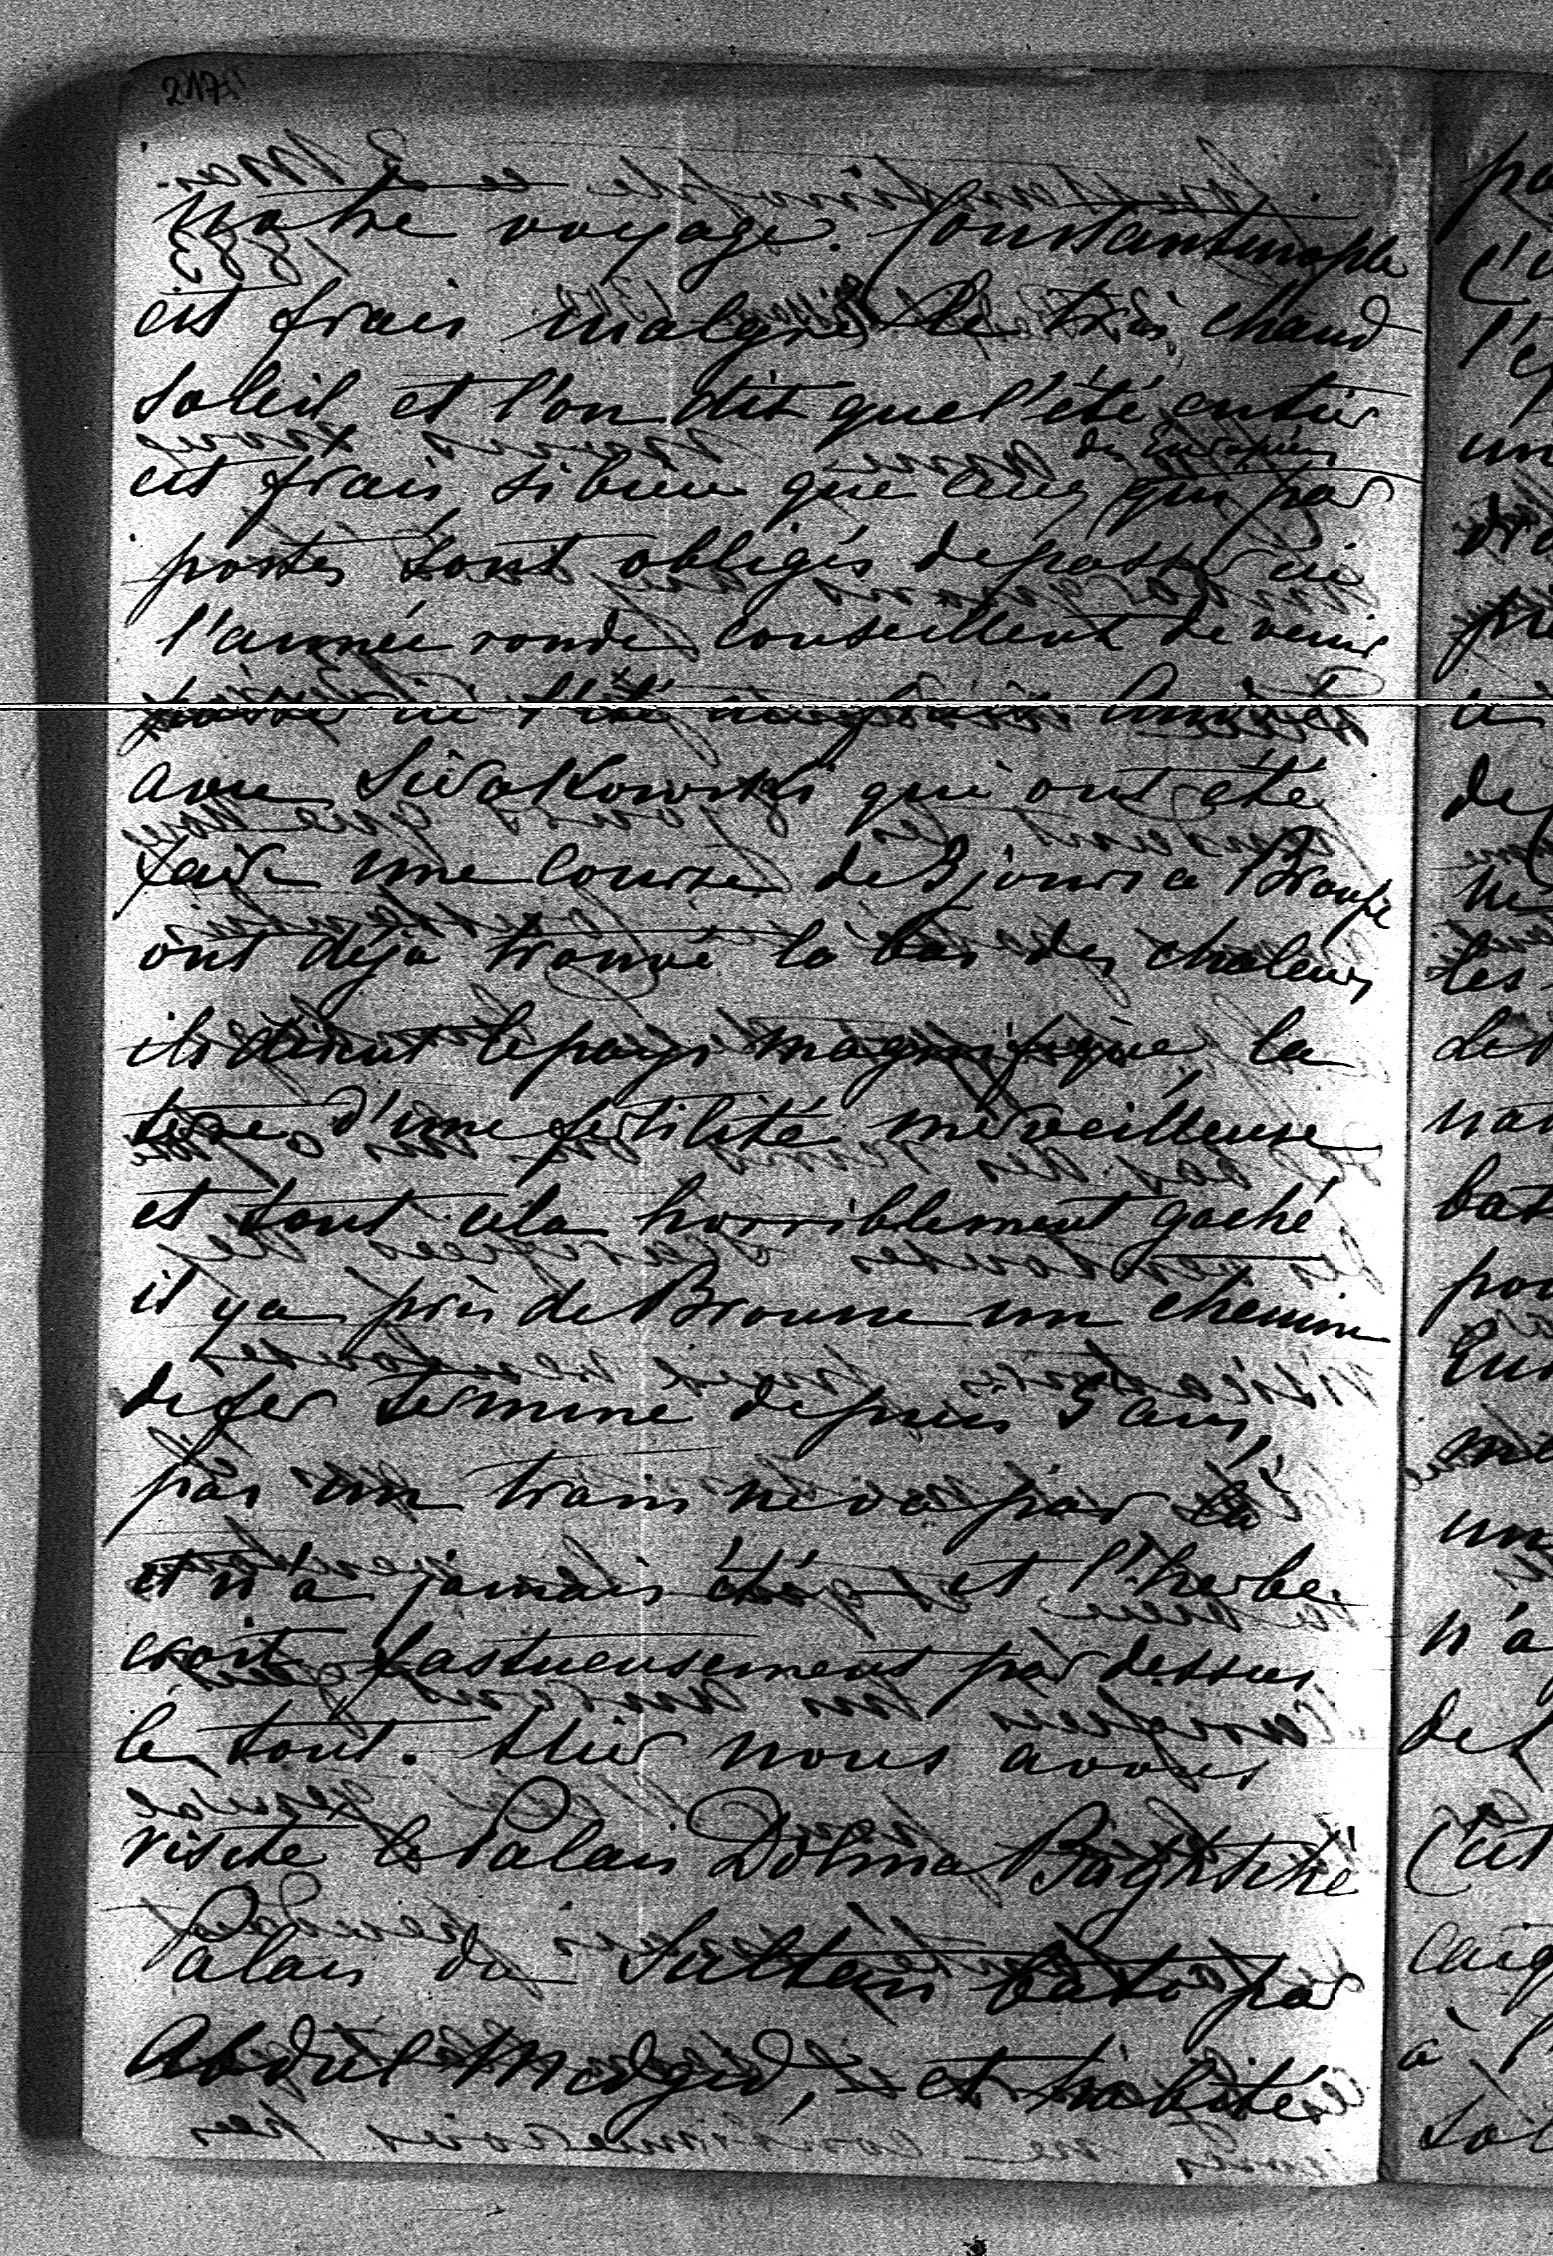 217
notre voyage. Constantinople
est frais malgré le très chaud
soleil et l'on dit que l'été entier
est frais si bien que ceux des Européens qui par
postes sont obligés de passer ici
l'année ronde conseillent de venir
passer ici l'été
avec Siwatkowski qui ont été
faire une course de 3 jours a Brousse
ont déjà trouvé là bas des chaleurs
ils disent le pays magnifique la
terre d'une fertilité merveilleuse
et tout cela horriblement gaché
il y a près de Brousse un chemin
de fer terminé depuis 5 ans,
pas un train ne va par là
et n'a jamais été — et l'herbe
croit fastueusement par dessus
le tout. Hier nous avons
visité le Palais Dolma Baghtché
Palais du Sultan bati par
Abdul Medgid, — et habité